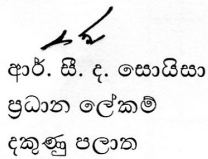 ආර්. සී. ද. සොයිසා
ප්‍රධාන ලේකම්
දකුණු පලාත